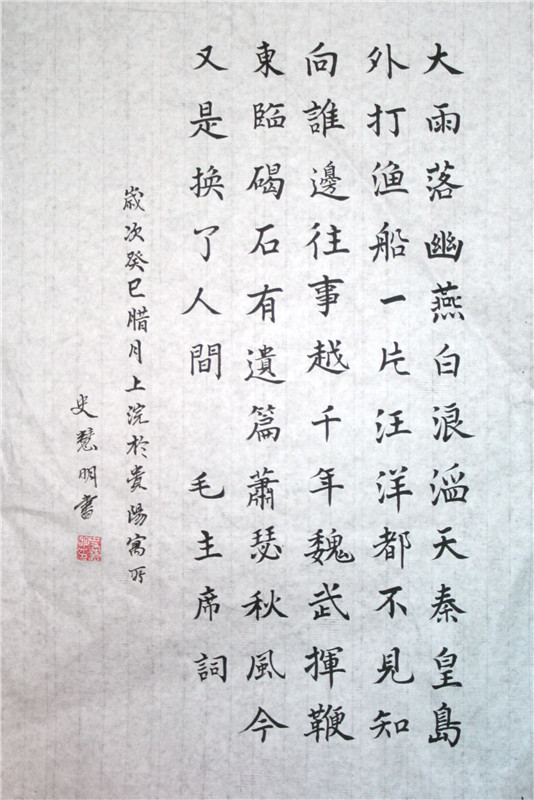 大雨落幽燕白浪滔天秦皇島
外打渔船一片汪洋都不見知
向誰邊往事越千年魏武揮鞭
東臨碣石有遺篇蕭瑟秋風今
又是换了人間 毛主席詞
歲次癸巳腊月上浣於貴陽寓所
史慧明書